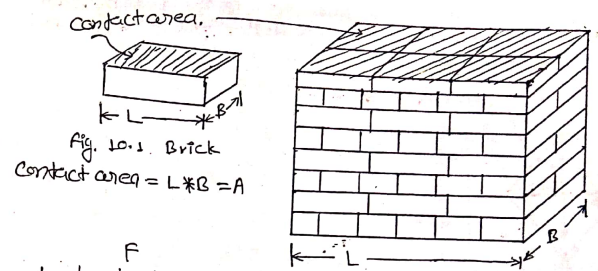 Contact area.
L
B
Fig. 10.1 Brick
Contact area = L*B = A
F
L
B